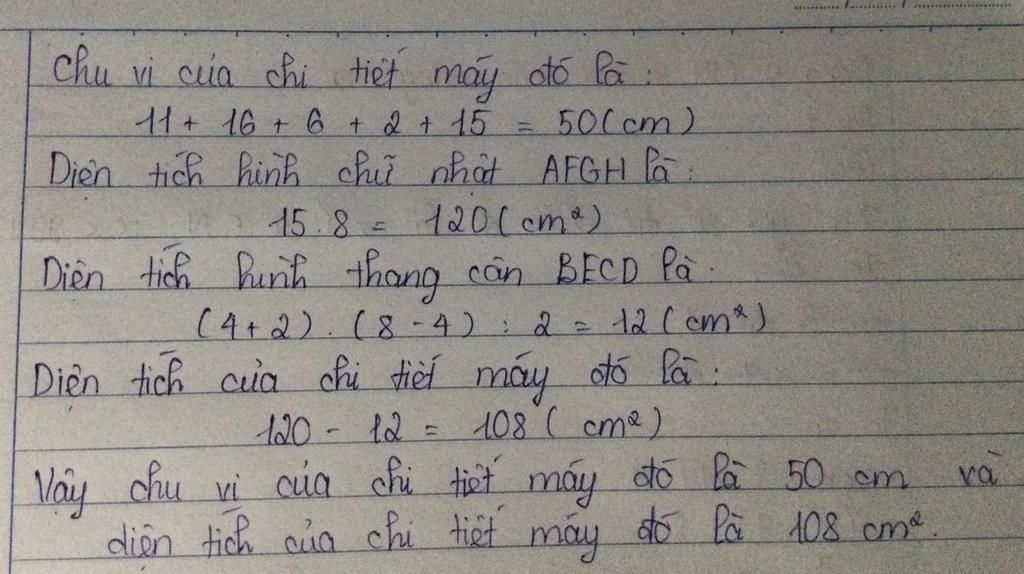 Chu vi của chi tiết máy đó là:
11 + 16 + 6 + 2 + 15 = 50 (cm)
Diện tích hình chữ nhật AFGH là:
15.8 = 120 (cm²)
Diện tích hình thang cân BECD là.
(4+2).(8-4):2 = 12 (cm²)
Diện tích của chi tiết máy đó là:
120 - 12 = 108 (cm²)
Vậy chu vi của chi tiết máy đó là 50 cm và
diện tích của chi tiết máy đó là 108 cm².